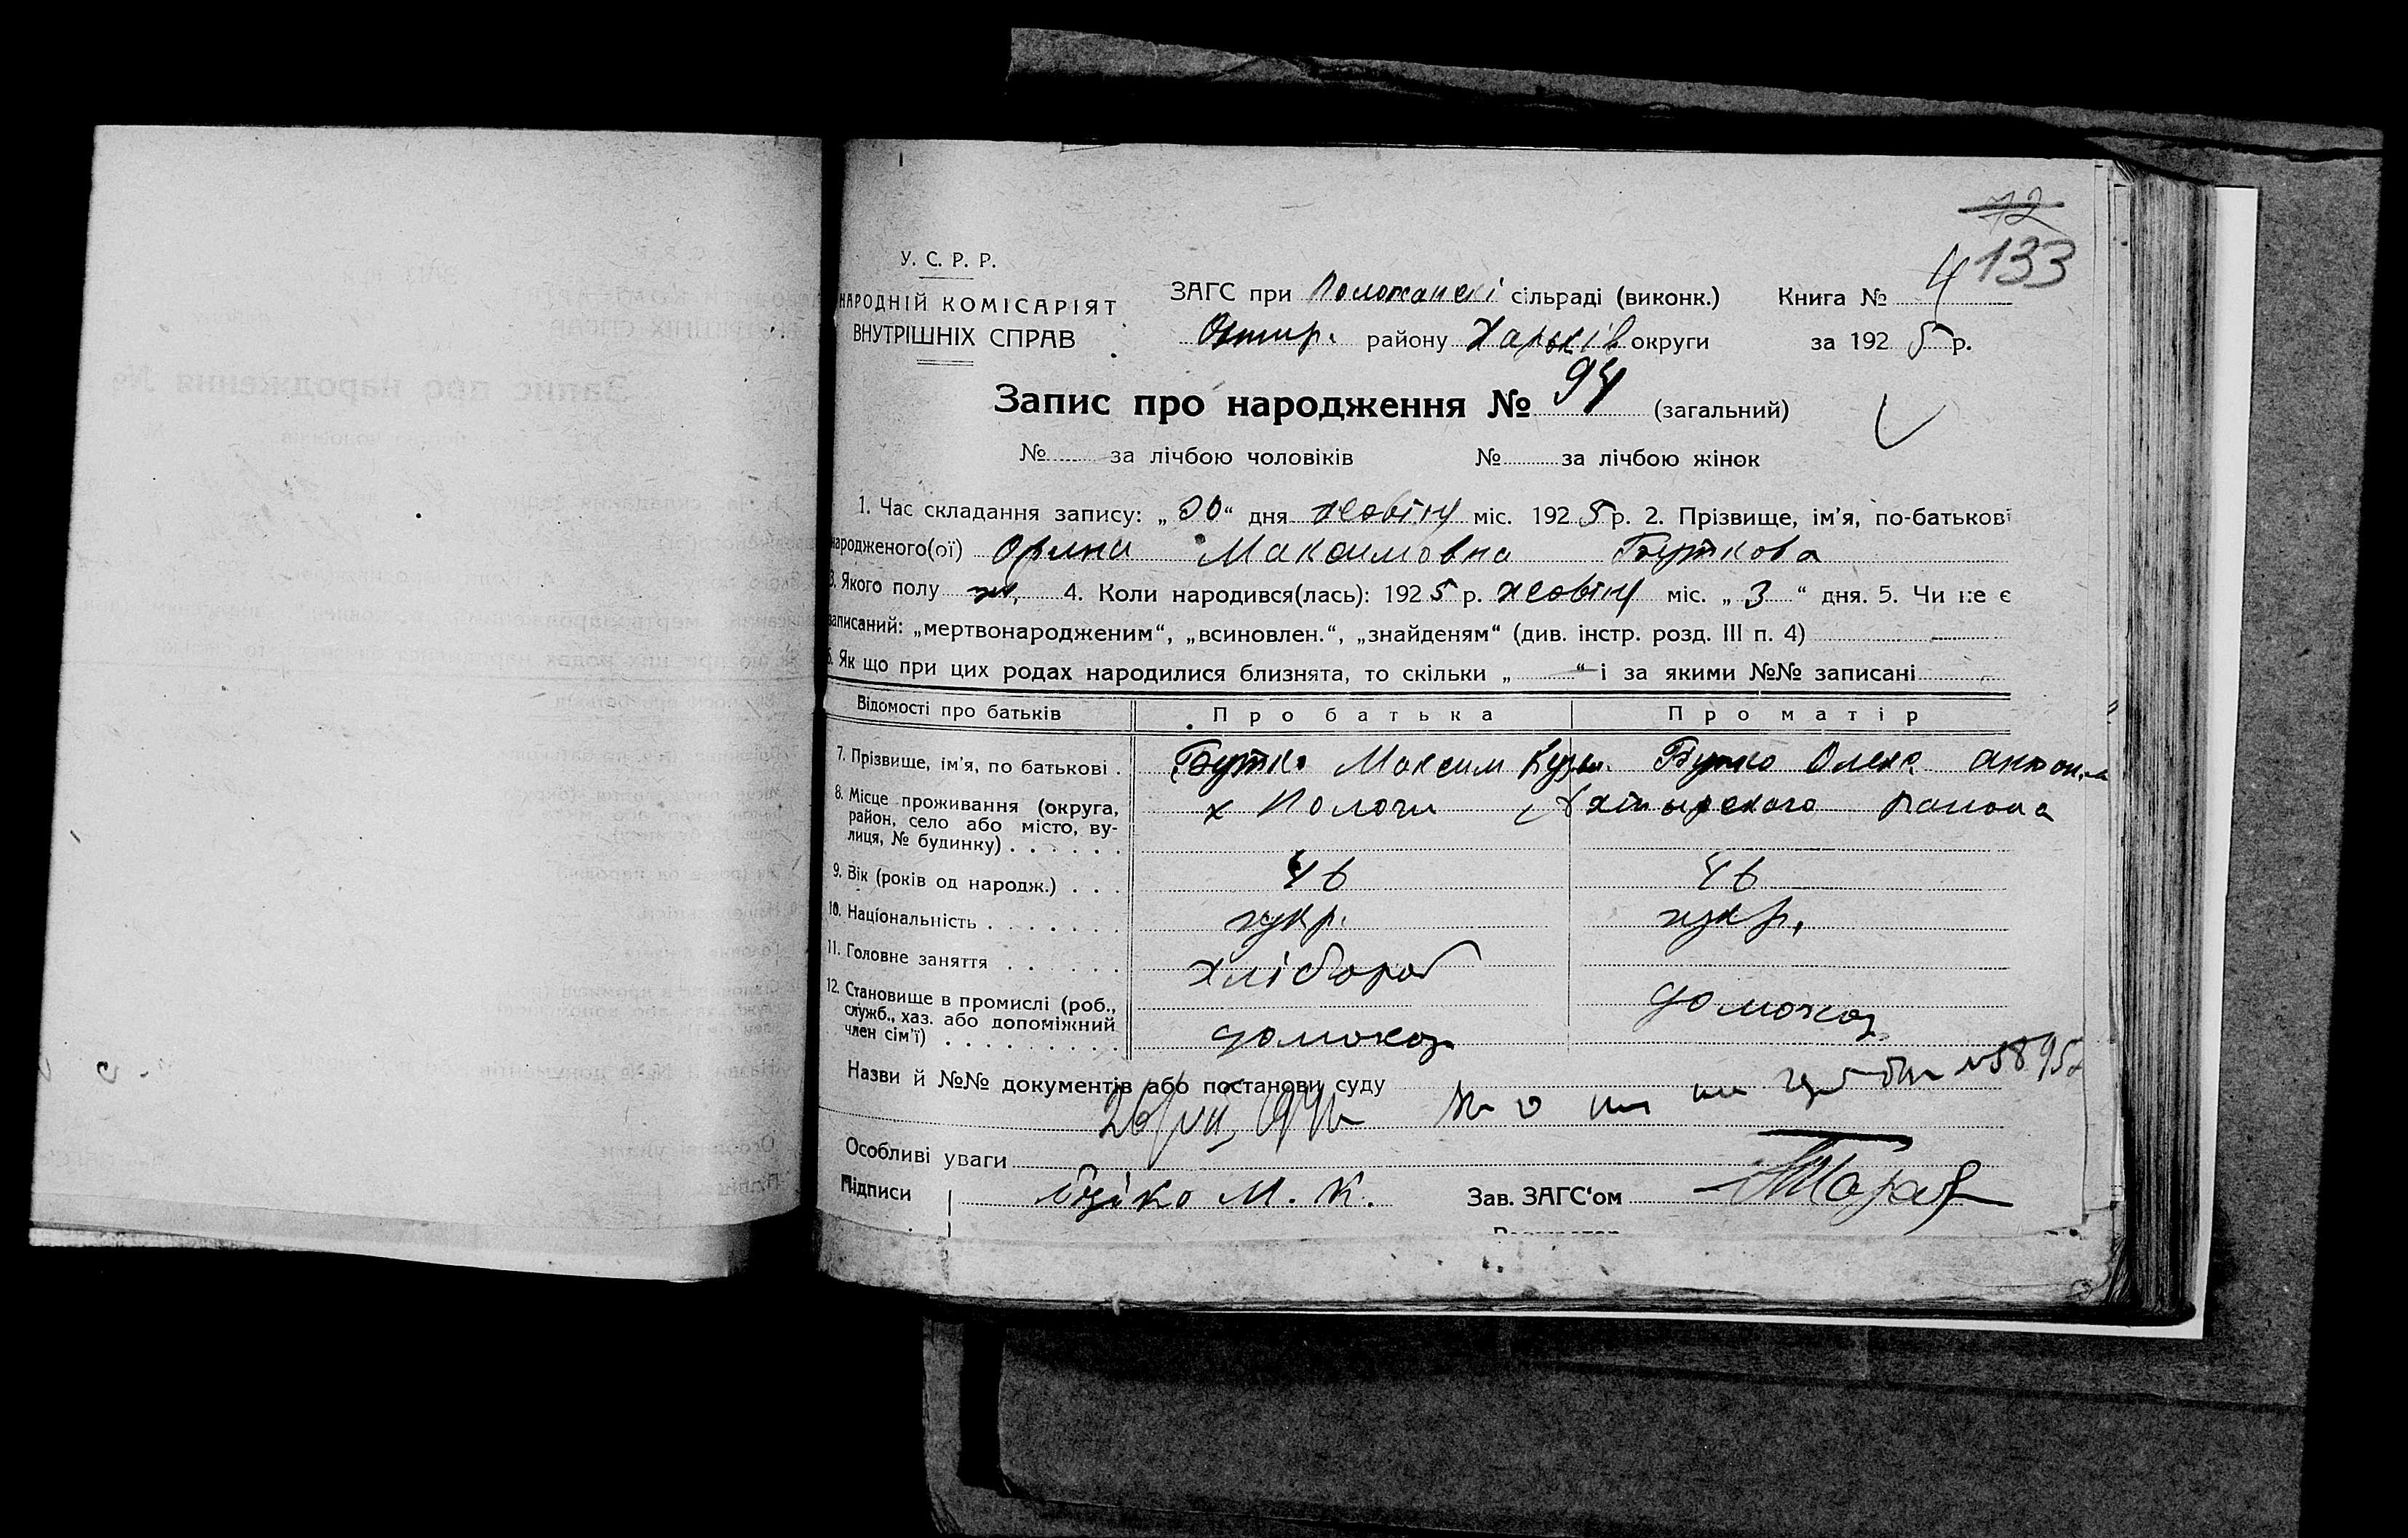 72
133
У. С. Р. Р.
НАРОДНІЙ КОМІСАРІЯТ
ВНУТРІШНІХ СПРАВ
ЗАГС при сільраді (виконк.) Книга № 4
району Харьків округи за 1925 р.
Запис про народження № 94 (загальний)
№ за лічбою чоловіків № за лічбою жінок
1. Час складання запису: „30“ дня міс. 1925 р. 2. Прізвище, ім’я, по-батькові
народженого(ої) Орина Максимовна Буткова
3. Якого полу ж. 4. Коли народився(лась): 1925 р. міс. „3“ дня. 5. Чи не є
записаний: „мертвонародженим“, „всиновлен.“, „знайденям“ (див. інстр. розд. III п. 4)
6. Як що при цих родах народилися близнята, то скільки „ “ і за якими №№ записані
Відомості про батьків Про батька Про матір
7. Прізвище, ім’я, по батькові . Бутко Максим Кузм. Бутко Олена Антон
8. Місце проживання (округа,
район, село або місто, вулиця, № будинку) х Пологи Ахтырского района
9. Вік (років од народж.) 46 46
10. Національність укр. укр.
11. Головне заняття хлібороб
12. Становище в промислі (роб.,
служб., хаз. або допоміжний
член сім’ї) домохоз домохоз
Назви й №№ документів або постанови суду
Особливі уваги
Підписи Бутко М. К. Зав. ЗАГС‘ом